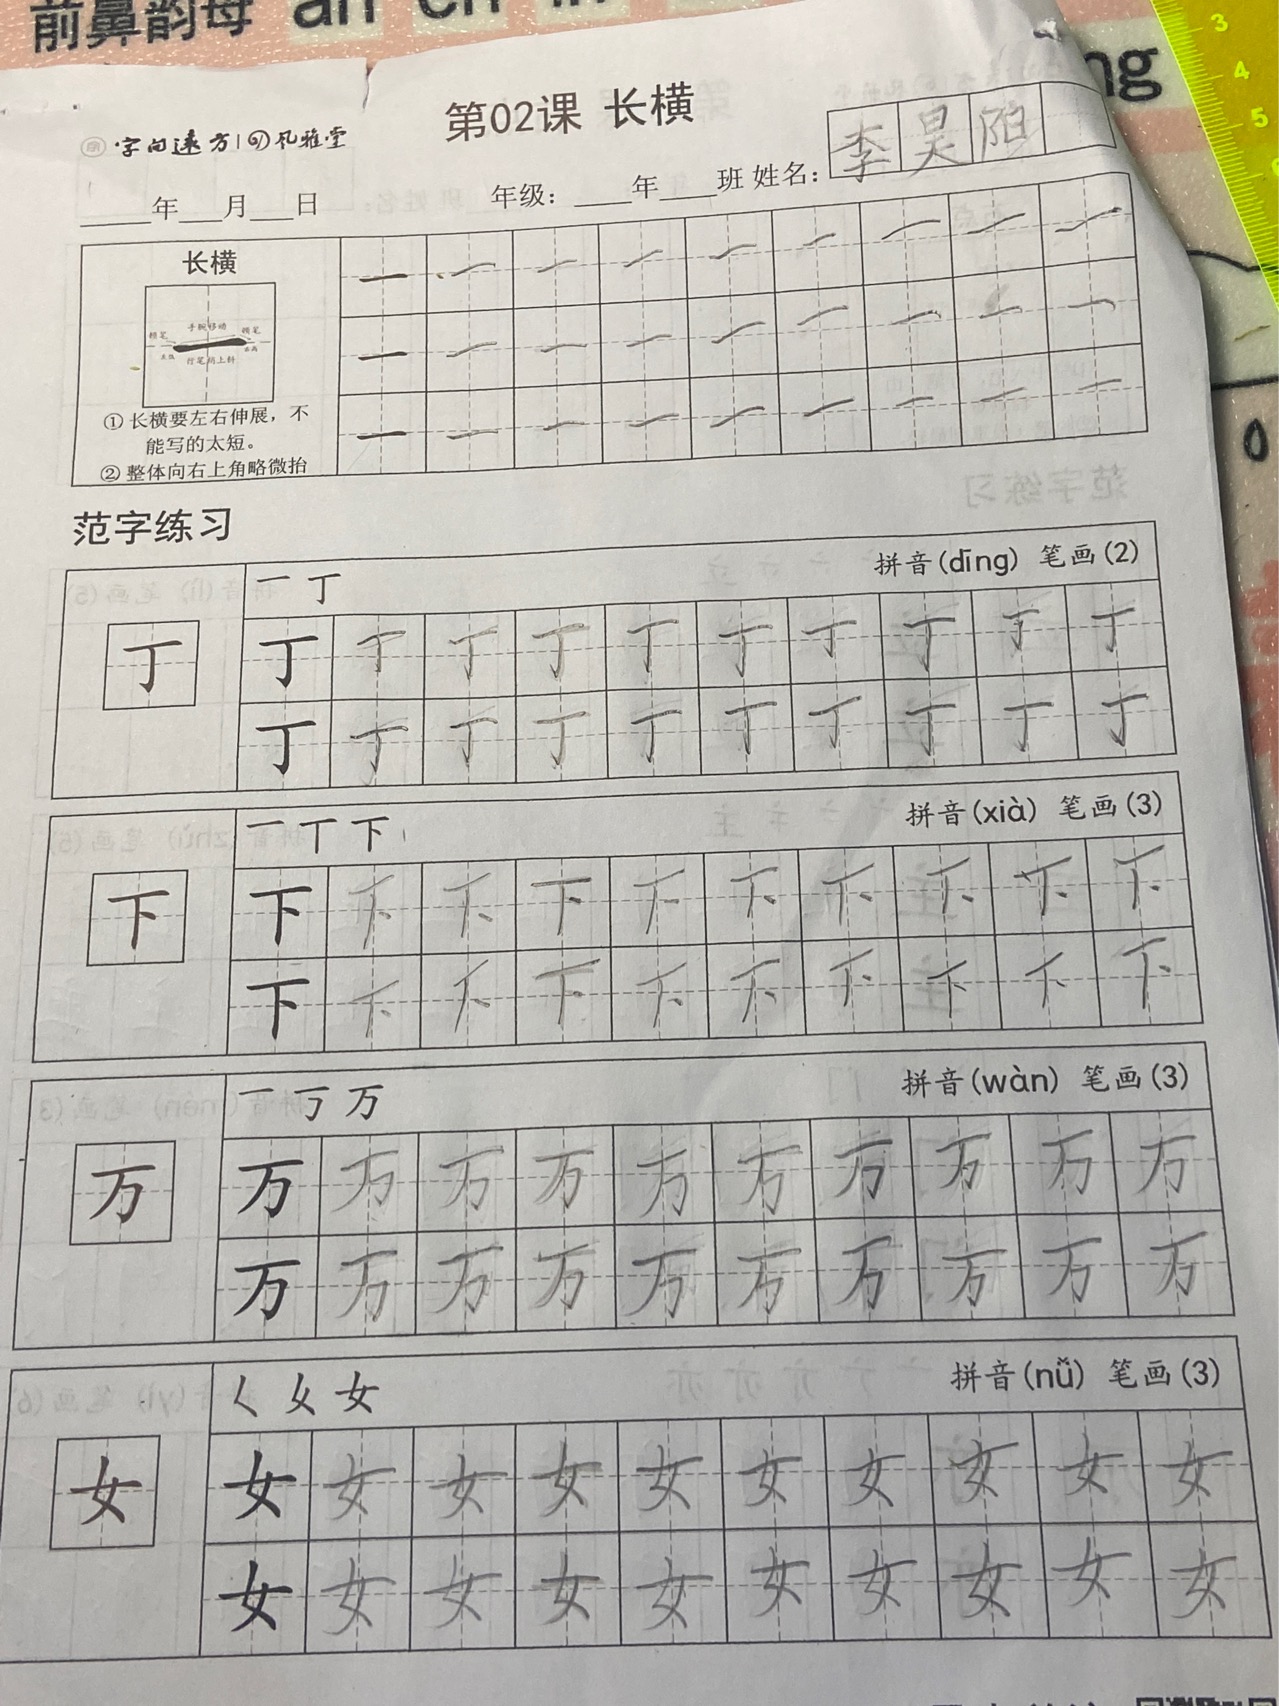 前鼻韵母 an en in
ng
3
4
5
第02课 长横
字向远方 风雅堂
年 月 日 年级: 年 班 姓名: 李昊阳
长横
手腕移动
顿笔 顿笔
行笔稍上斜
①长横要左右伸展，不
能写的太短。
②整体向右上角略微抬
一 一 一 一 一 一 一 一 一
一 一 一 一 一 一 一 一 一
一 一 一 一 一 一 一 一 一
范字练习
一 丁 拼音(dīng) 笔画(2)
丁
丁 丁 丁 丁 丁 丁 丁 丁 丁 丁
丁 丁 丁 丁 丁 丁 丁 丁 丁 丁
一 丅 下 拼音(xià) 笔画(3)
下
下 下 下 下 下 下 下 下 下 下
下 下 下 下 下 下 下 下 下 下
一 丂 万 拼音(wàn) 笔画(3)
万
万 万 万 万 万 万 万 万 万 万
万 万 万 万 万 万 万 万 万 万
女 拼音(nǚ) 笔画(3)
女
女 女 女 女 女 女 女 女 女 女
女 女 女 女 女 女 女 女 女 女